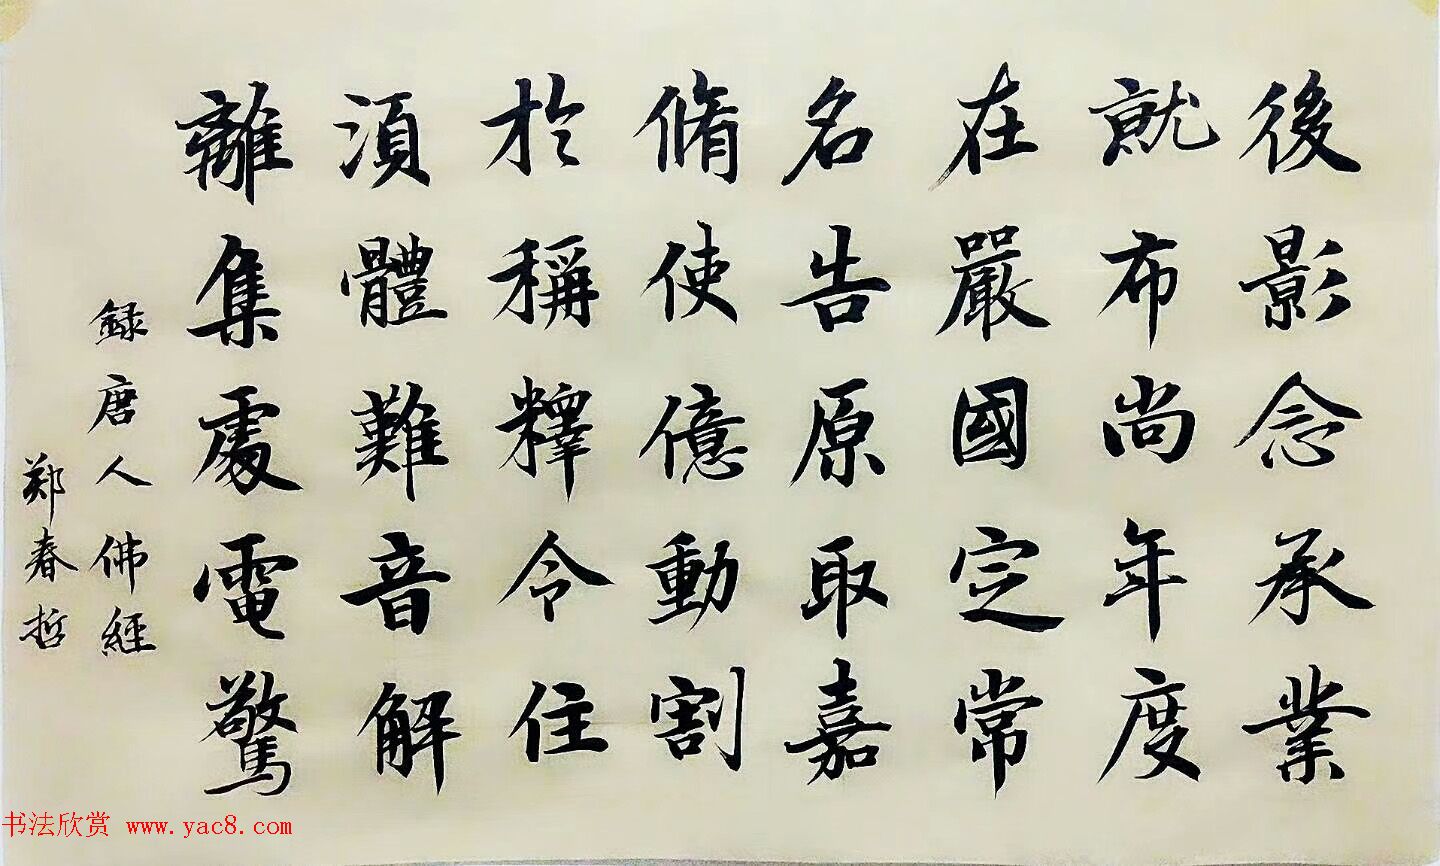 後影念承業
就布尚年度
在嚴國定常
名告原取嘉
脩使億動割
於稱釋令住
須體難音解
離集處電驚
録唐人佛經
郑春哲
书法欣赏 www.yac8.com